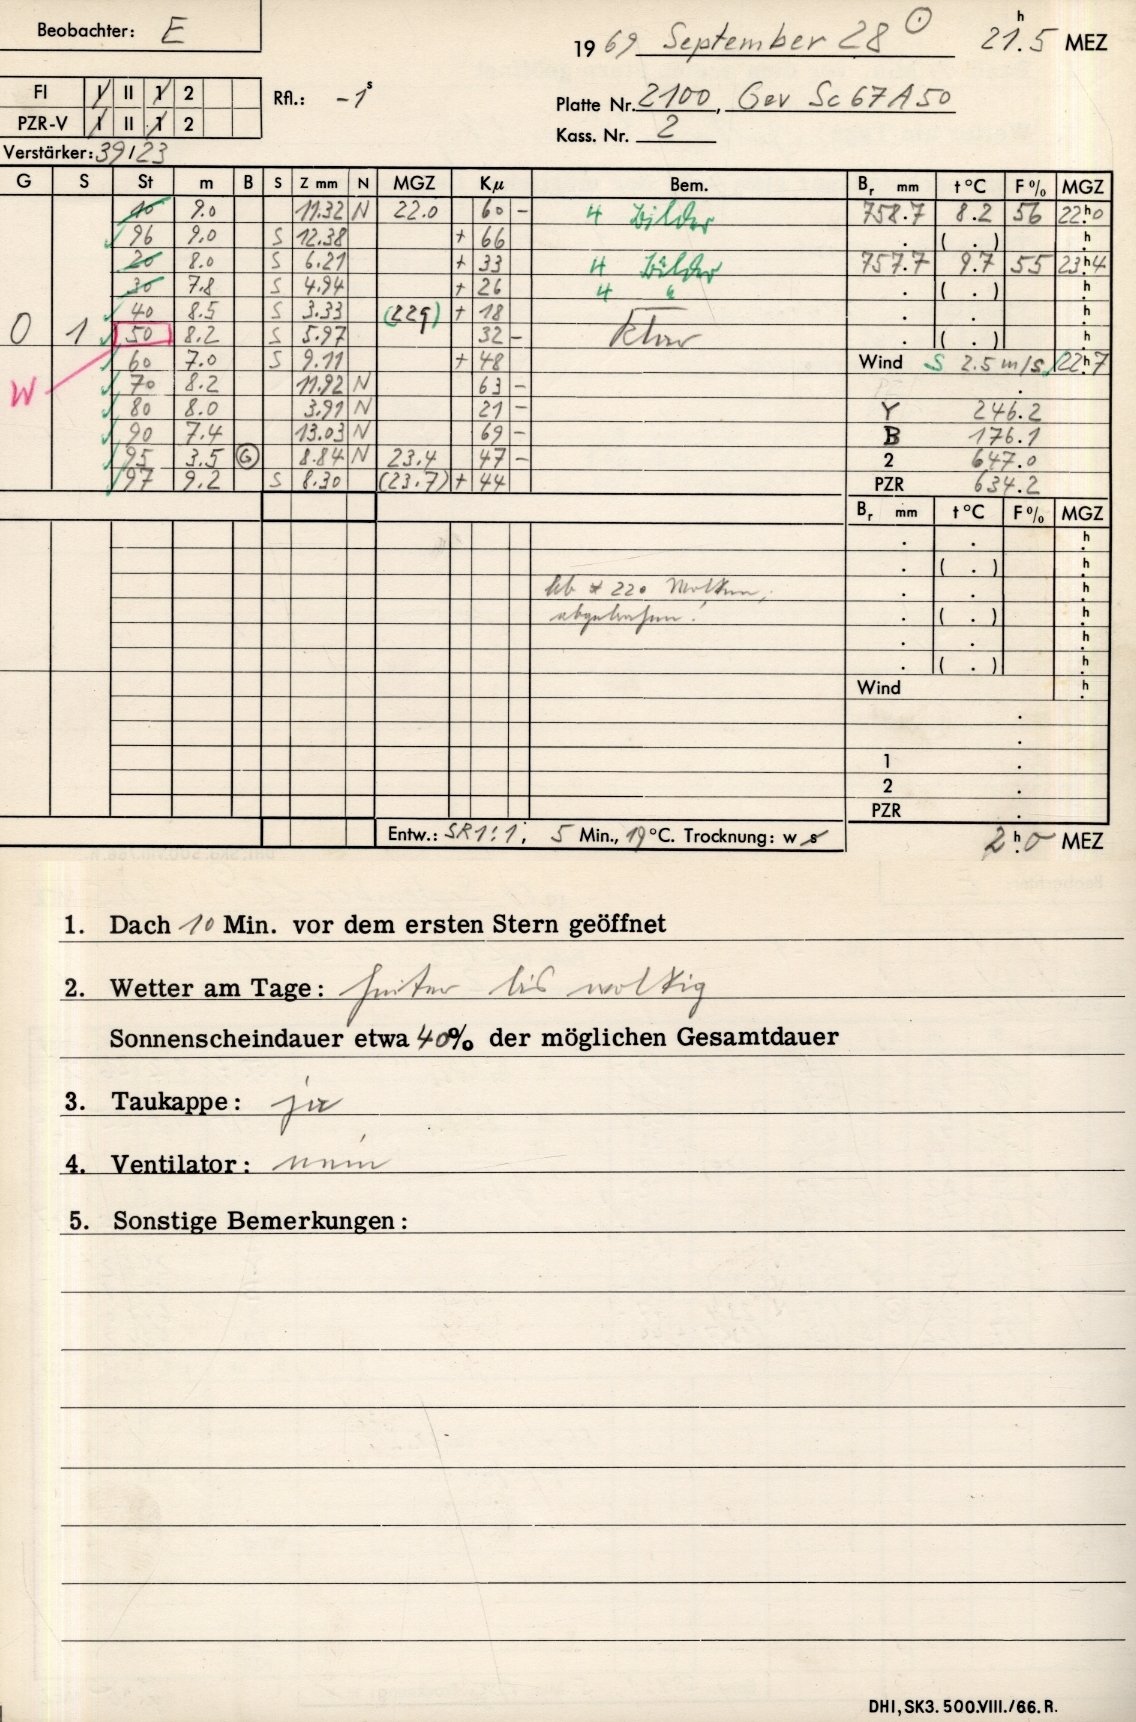 Beobachter: E
1969 September 28 ☉ 21.5 h MEZ
FI I II 1 2 Rfl.: -1s
Platte Nr. 2100, Gev Sc 67 A 50
PZR-V I II 1 2
Kass. Nr. 2
Verstärker: 39/23
G S St m B S Z mm N MGZ Kμ Bem. Br mm t °C F % MGZ
10 9.0 11.32 N 22.0 60 - 4 Bilder 758.7 8.2 56 22h0
96 9.0 S 12.38 + 66 . ( . ) h
20 8.0 S 6.21 + 33 4 Bilder 757.7 9.7 55 23h4
30 7.8 S 4.94 + 26 4 " . ( . ) h
40 8.5 S 3.33 (229) + 18 . . h
0 1 50 8.2 S 5.97 32 - klar . ( . ) h
60 7.0 S 9.11 + 48 Wind S 2.5 m/s, 22h7
W 70 8.2 11.92 N 63 - .
80 8.0 3.91 N 21 - Y 246.2
90 7.4 13.03 N 69 - B 176.1
95 3.5 G 8.84 N 23.4 47 - 2 647.0
97 9.2 S 8.30 (23.7) + 44 PZR 634.2
Br mm t °C F % MGZ
. . h
. ( . ) h
Ab * 220 Wolken, . . h
abgebrochen. . ( . ) h
. . h
. ( . ) h
Wind h
.
.
1 .
2 .
PZR .
Entw.: SR 1:1, 5 Min., 19 °C. Trocknung: w s
2h.0 MEZ
1. Dach 10 Min. vor dem ersten Stern geöffnet
2. Wetter am Tage: heiter bis wolkig
Sonnenscheindauer etwa 40% der möglichen Gesamtdauer
3. Taukappe: ja
4. Ventilator: nein
5. Sonstige Bemerkungen:
DHI, SK3. 500.VIII./66. R.